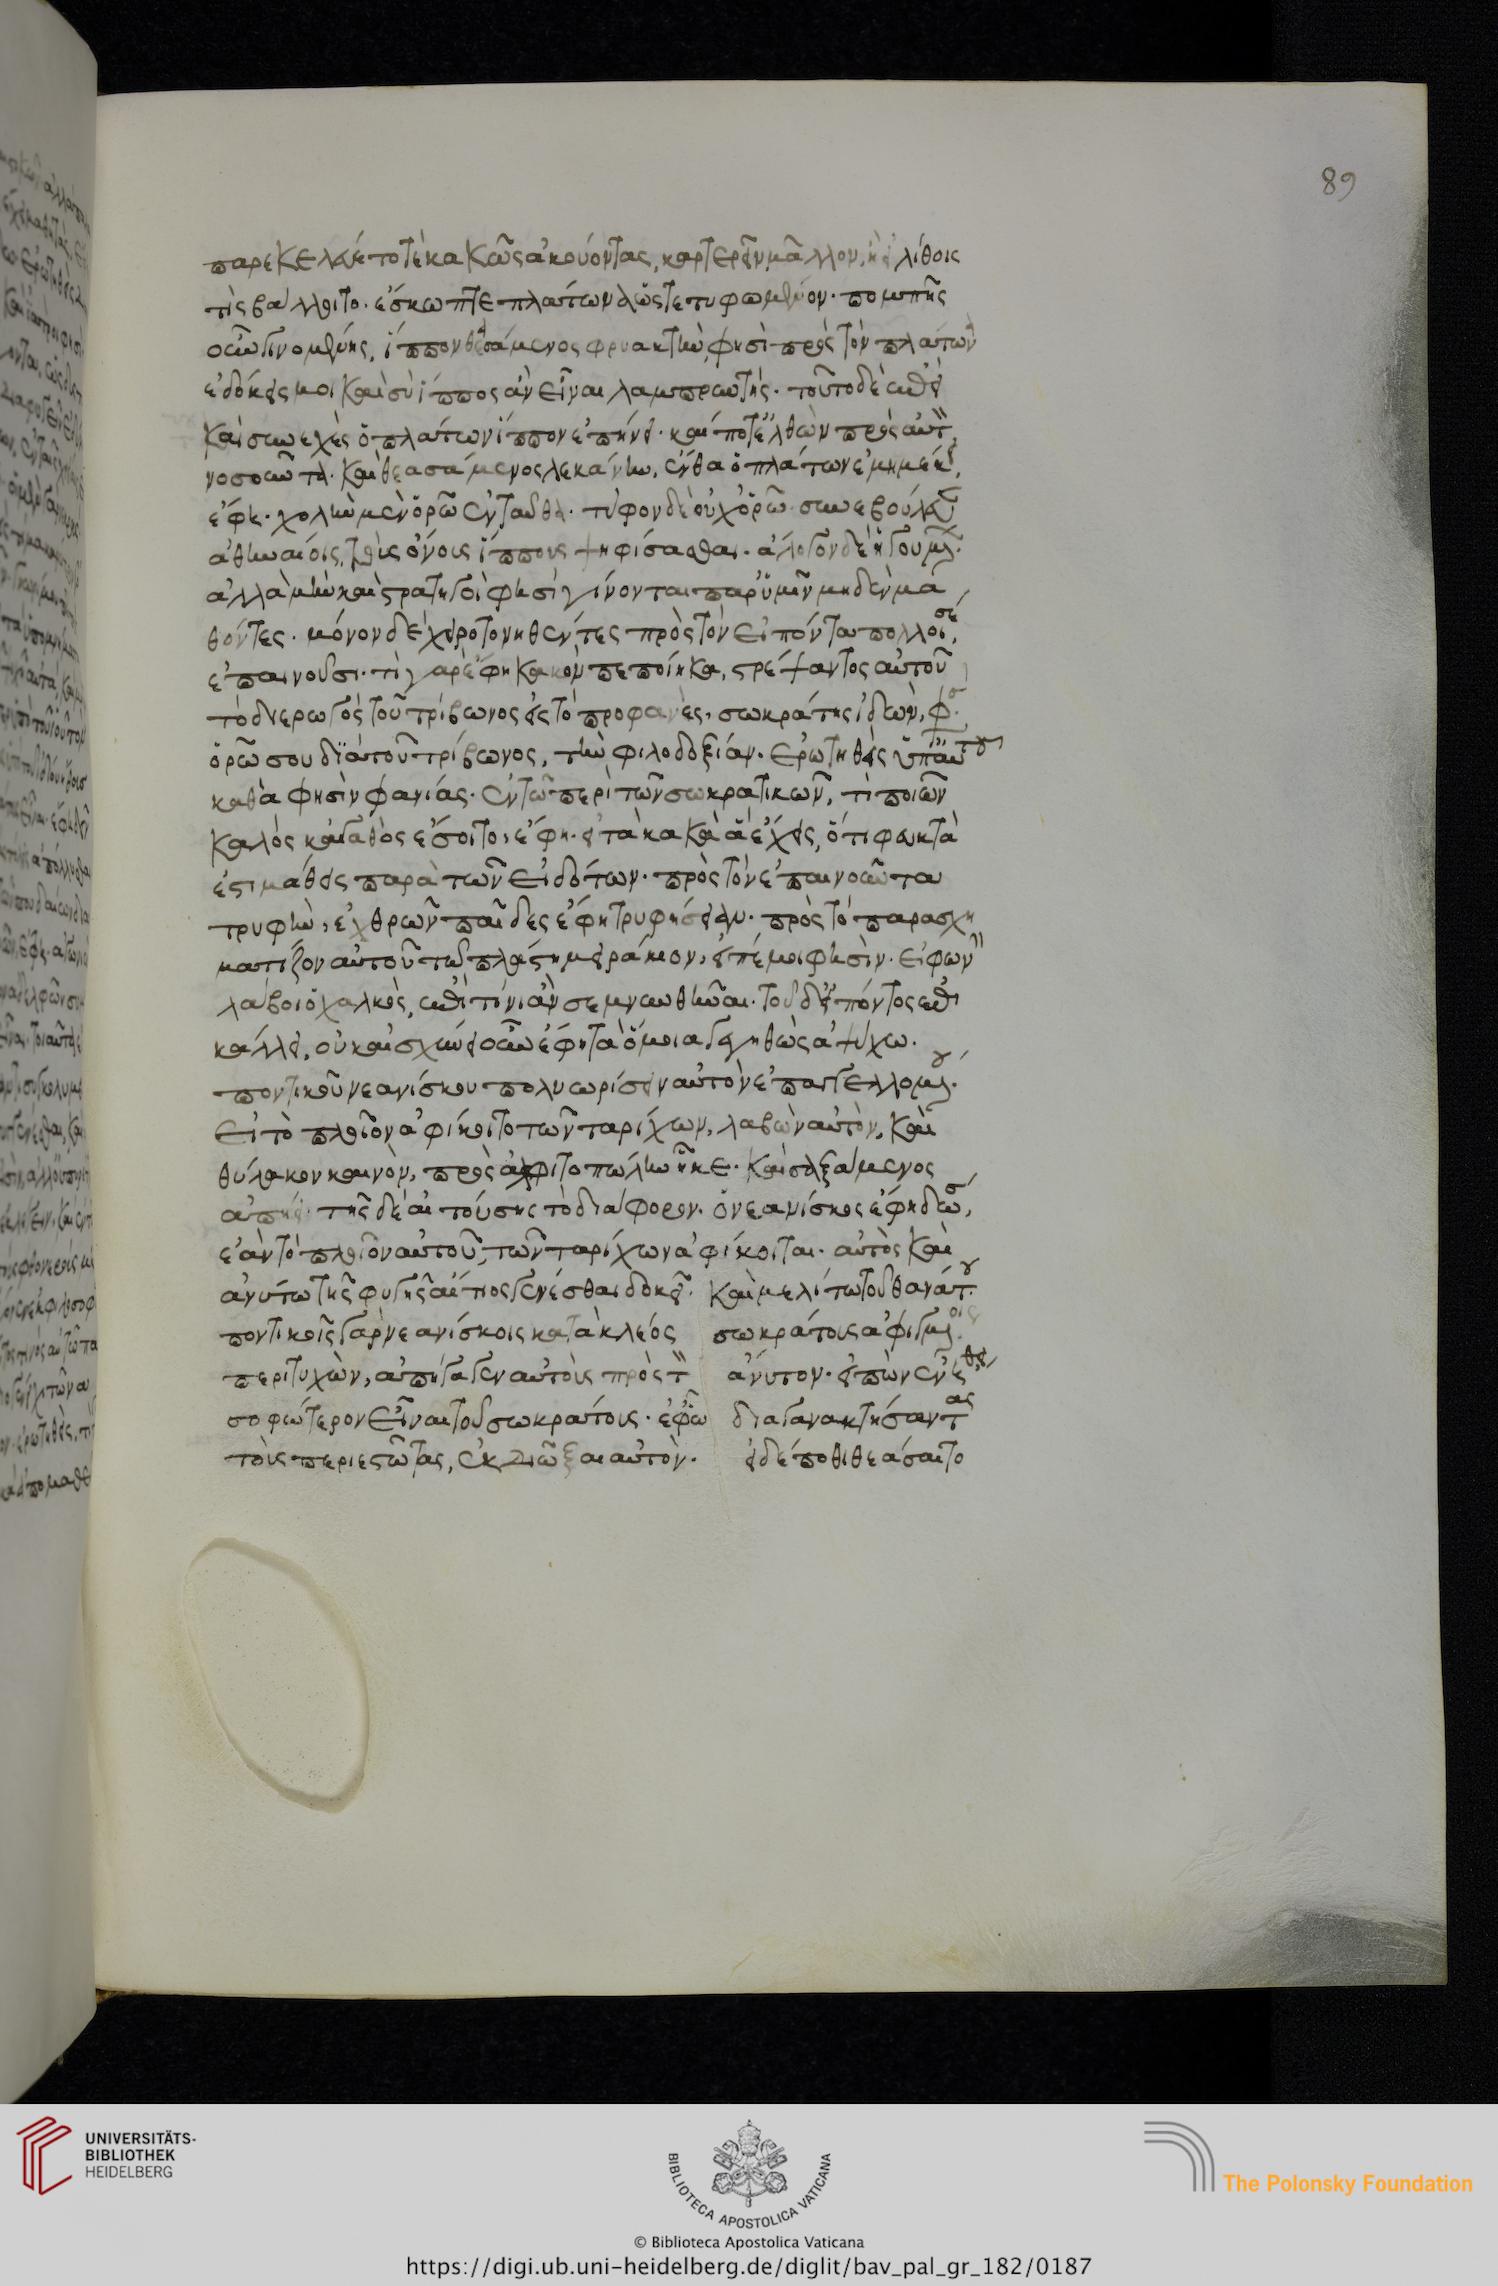 89
παρεκελεύετο τὲ κακῶς ἀκούοντας, καρτερεῖν μᾶλλον, ἢ εἰ λίθοις
τὶς βάλλοιτο. ἔσκωπτε πλάτωνα ὥς τετυφωμένον. πομπῆς
οὖν γινομένης, ἵππον θεασάμενος φρυακτὴν, φησὶ πρὸς τὸν πλάτων
ἐδόκεις μοι καὶ σὺ ἵππος ἂν εἶναι λαμπρυντής. τοῦτο δὲ ἐπεὶ
καὶ συνεχὲς ὁ πλάτων ἵππον ἐπήνει. καί ποτ' ἐλθὼν πρὸς αὐτ
νοσοῦντα. καὶ θεασάμενος λεκάνην, ἔνθα ὁ πλάτων ἐμημέκει,
ἔφη. χολὴν μὲν ὁρῶ ἐνταῦθα. τύφον δὲ οὐχ ὁρῶ. συνεβούλευ
ἀθηναίοις, τοὺς ὄνους ἵππους ψηφίσασθαι. ἄλογον δὲ ἡγουμ.
ἀλλὰ μὴν καὶ στρατηγοὶ φησὶ γίνονται παρ' ὑμῖν μηδὲν μα
θόντες. μόνον δὲ χειροτονηθέντες πρὸς τὸν εἰπόντα πολλοί σε,
ἐπαινοῦσι. τί γὰρ ἔφη κακὸν πεποίηκα, στρέψαντος αὐτοῦ
τὸ διερωγὸς τοῦ τρίβωνος εἰς τὸ προφανὲς, σωκράτης ἰδὼν, φσ.
ὁρῶ σου διὰ τοῦ τρίβωνος, τὴν φιλοδοξίαν. ἐρωτηθεὶς ὑπό του
καθὰ φησὶν φανίας. ἐν τῶ περὶ τῶν σωκρατικῶν, τί ποιῶν
καλὸς κἀγαθὸς ἔσοιτο, ἔφη. εἰ τὰ κακὰ ἃ ἔχεις, ὅτι φευκτὰ
ἐστι μάθεις παρὰ τῶν εἰδότων. πρὸς τὸν ἐπαινοῦντα
τρυφὴν, ἐχθρῶν παῖδες ἔφη τρυφήσειαν. πρὸς τὸ παρασχη
ματίζον αὐτοῦ τῶ πλάστη μειράκιον, εἰπέ μοι φησὶν. εἰ φων
λάβοι ὁ χαλκὸς, ἐπὶ τίνι ἂν σεμνυνθῆναι. τοῦ δ' εἰπόντος ἐπὶ
κάλλει, οὐκ αἰσχύνει οὖν ἔφη τὰ ὅμοια γεγηθὼς ἀψύχω.
ποντικοῦ νεανίσκου πολυωρίσειν αὐτὸν ἐπαγγελλομ.
εἰ τὸ πλοῖον ἀφίκοιτο τῶν ταρίχων, λαβὼν αὐτὸν, καὶ
θύλακον καινὸν, πρὸς ἀλφιτοπώλην ἧκε. καὶ σαξάμενος
ἀπήει. τῆς δὲ αἰτούσης τὸ διάφορον. ὁ νεανίσκος ἔφη δώσ,
ἐὰν τὸ πλοῖον αὐτοῦ τῶν ταρίχων ἀφίκοιται. αὐτὸς καὶ
ἀνύτω τῆς φυγῆς αἴτιος γενέσθαι δοκεῖ. καὶ μελίτω τοῦ θανάτ.
ποντικοῖς γὰρ νεανίσκοις κατὰ κλέος σωκράτους ἀφιγμ.οις
περιτυχὼν, ἀπήγαγεν αὐτοὺς πρὸς τ ἄνυτον. εἰπὼν ἐν ἤθει
σοφώτερον εἶναι τοῦ σωκράτους. ἐφ' ᾧ διαγανακτήσαντας
τοὺς περιεστῶτας, ἐκδιῶξαι αὐτόν. εἰ δέ ποθι θεάσαιτο
UNIVERSITÄTS-
BIBLIOTHEK
HEIDELBERG
BIBLIOTECA APOSTOLICA VATICANA
The Polonsky Foundation
© Biblioteca Apostolica Vaticana
https://digi.ub.uni-heidelberg.de/diglit/bav_pal_gr_182/0187